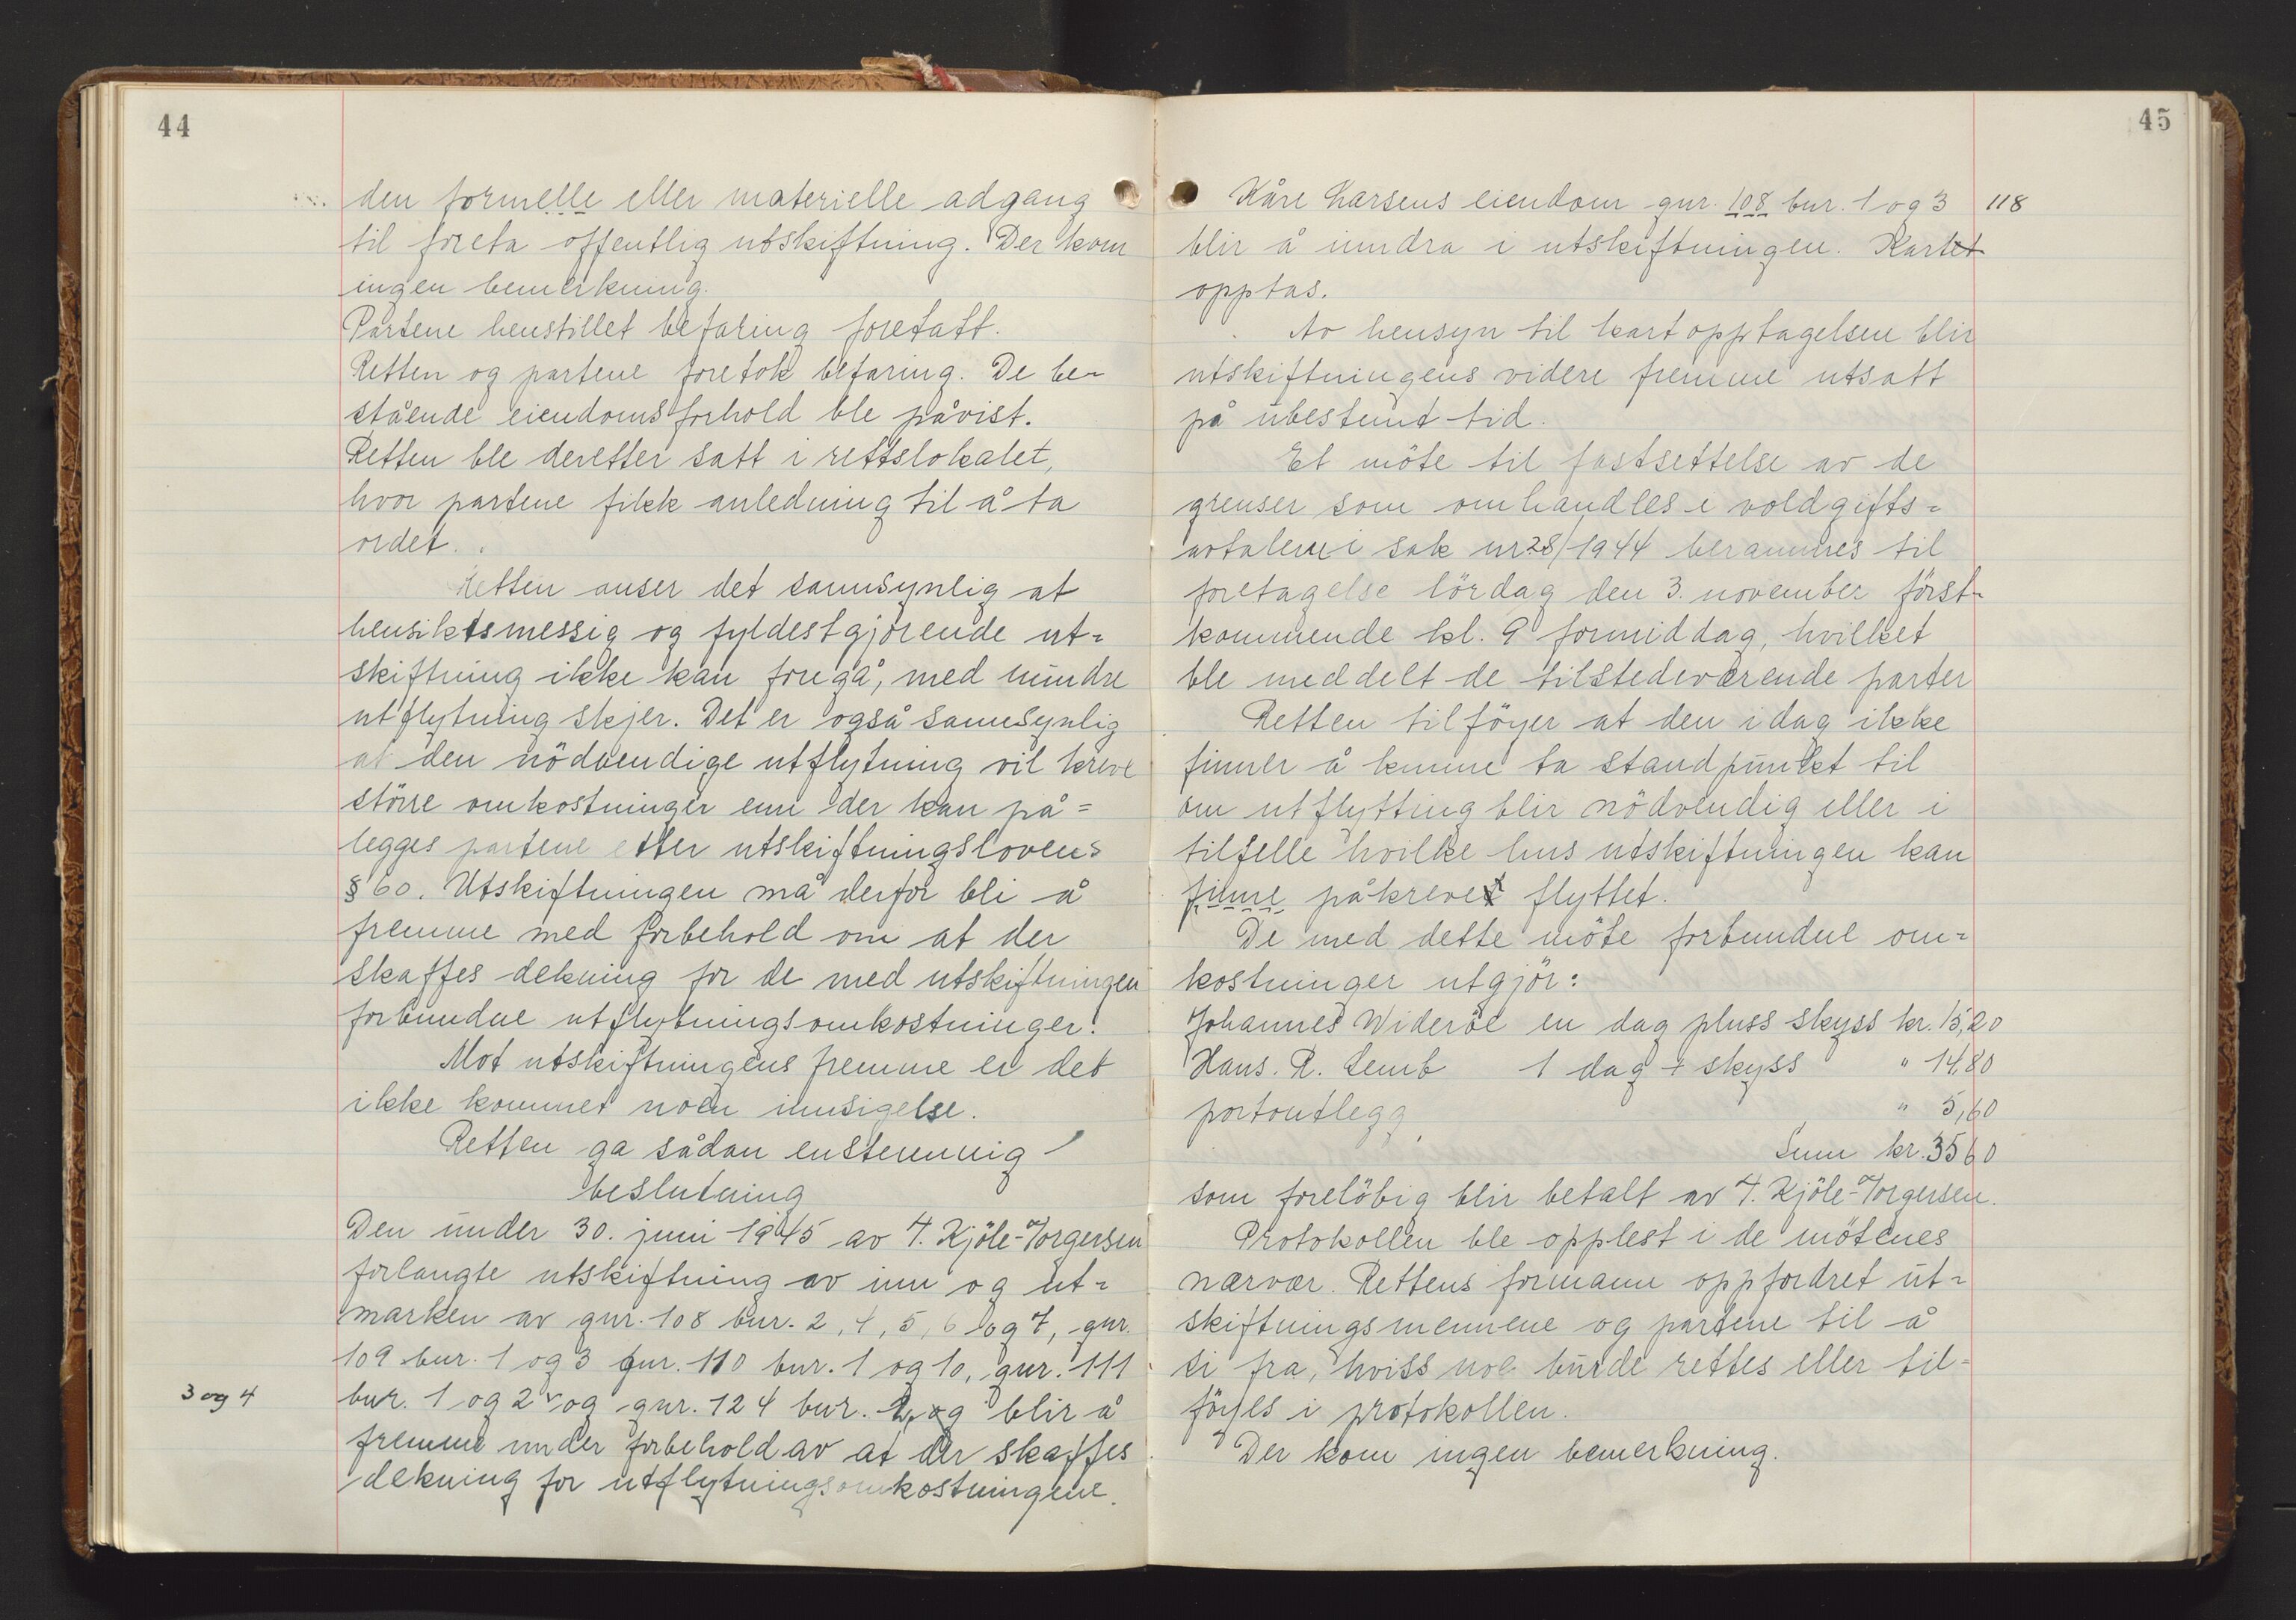 44
den formelle eller materielle adgang
til foreta offentlig utskiftning. Der kom
ingen bemerkning.
Partene henstillet befaring foretatt.
Retten og partene foretok befaring. De be-
stående eiendomsforhold ble påvist.
Retten ble deretter satt i rettslokalet,
hvor partene fikk anledning til å ta
ordet.
Retten anser det sannsynlig at
hensiktsmessig og fyldestgjörende ut=
skiftning ikke kan foregå, med mindre
utflytning skjer. Det er også sannsynlig
at den nödvendige utflytning vil kreve
större omkostninger enn der kan på=
legges partene etter utskiftningslovens
§ 60. Utskiftningen må derfor bli å
fremme med forbehold om at der
skaffes dekning for de med utskiftningen
forbundne utflytningsomkostninger.
Mot utskiftningens fremme er det
ikke kommet noen innsigelse.
Retten ga sådan enstemmig
beslutning
Den under 30. juni 1945 av T. Kjöle-Torgersen
forlangte utskiftning av inn og ut=
marken av gnr. 108 bnr. 2, 4, 5, 6 og 7, gnr.
109 bnr. 1 og 3 gnr. 110 bnr. 1 og 10, gnr. 111
3 og 4
bnr. 1 og 2 og gnr. 124 bnr. og blir å
fremme under forbehold av at der skaffes
dekning for utflytningsomkostningene.
45
Kåre Larsens eiendom gnr. 108 bnr. 1 og 3 118
blir å inndra i utskiftningen. Kartet
opptas.
Av hensyn til kartopptagelsen blir
utskiftningens videre fremme utsatt
på ubestemt tid.
Et möte til fastsettelse av de
grenser som omhandles i voldgifts=
avtalen i sak nr 28/1944 berammes til
foretagelse lördag den 3. november först-
kommende kl. 9 formiddag, hvilket
ble meddelt de tilstedeværende parter
Retten tilföyer at den idag ikke
finner å kunne ta standpunkt til
om utflytting blir nödvendig eller i
tilfelle hvilke hus utskiftningen kan
finne påkrevet flyttet.
De med dette möte forbundne om=
kostninger utgjör:
Johannes Wideröe en dag pluss skyss kr. 15,20
Hans. R. Lemb 1 dag + skyss " 14,80
portoutlegg " 5,60
Sum kr. 3560
som forelöbig blir betalt av T. Kjöle-Torgersen.
Protokollen ble opplest i de mötenes
nærvær. Rettens formann oppfordret ut=
skiftningsmennene og partene til å
si fra, hviss noe burde rettes eller til=
föyes i protokollen.
Der kom ingen bemerkning.